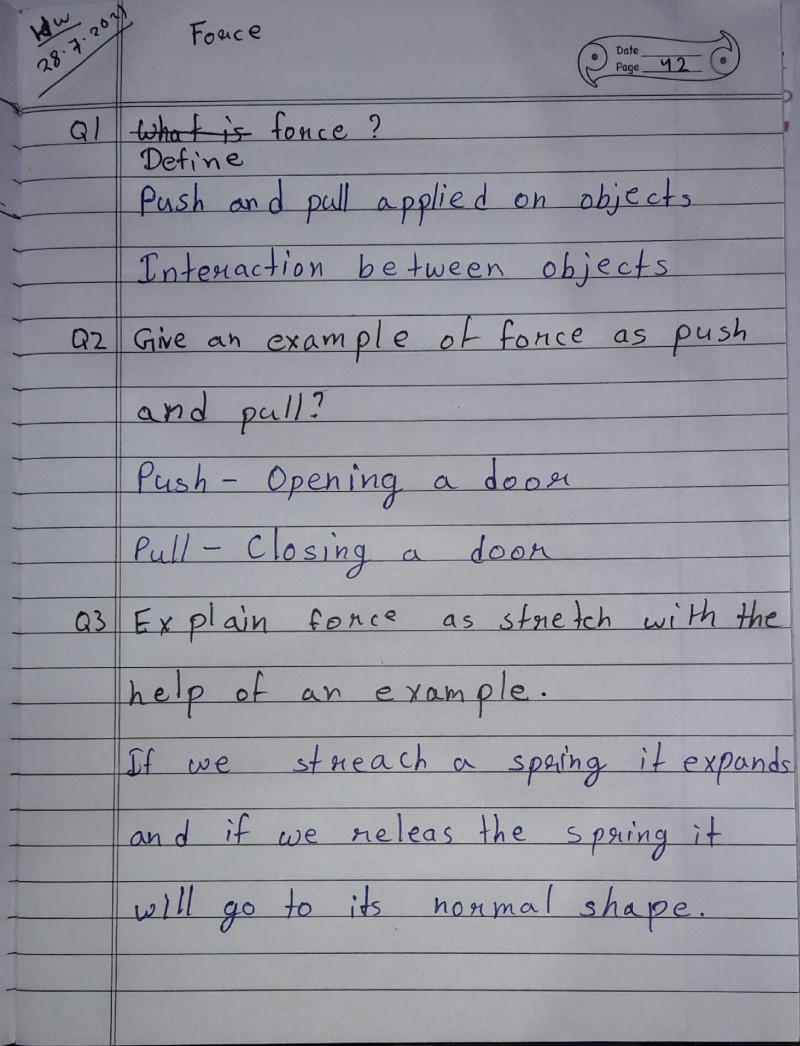 Hw
28.7.2021
Force
Date
Page 42
Q1 What is force ?
Define
Push and pull applied on objects
Interaction between objects
Q2 Give an example of force as push
and pull?
Push - Opening a door
Pull - Closing a door
Q3 Explain force as stretch with the
help of an example.
If we streach a spring it expands
and if we releas the spring it
will go to its normal shape.